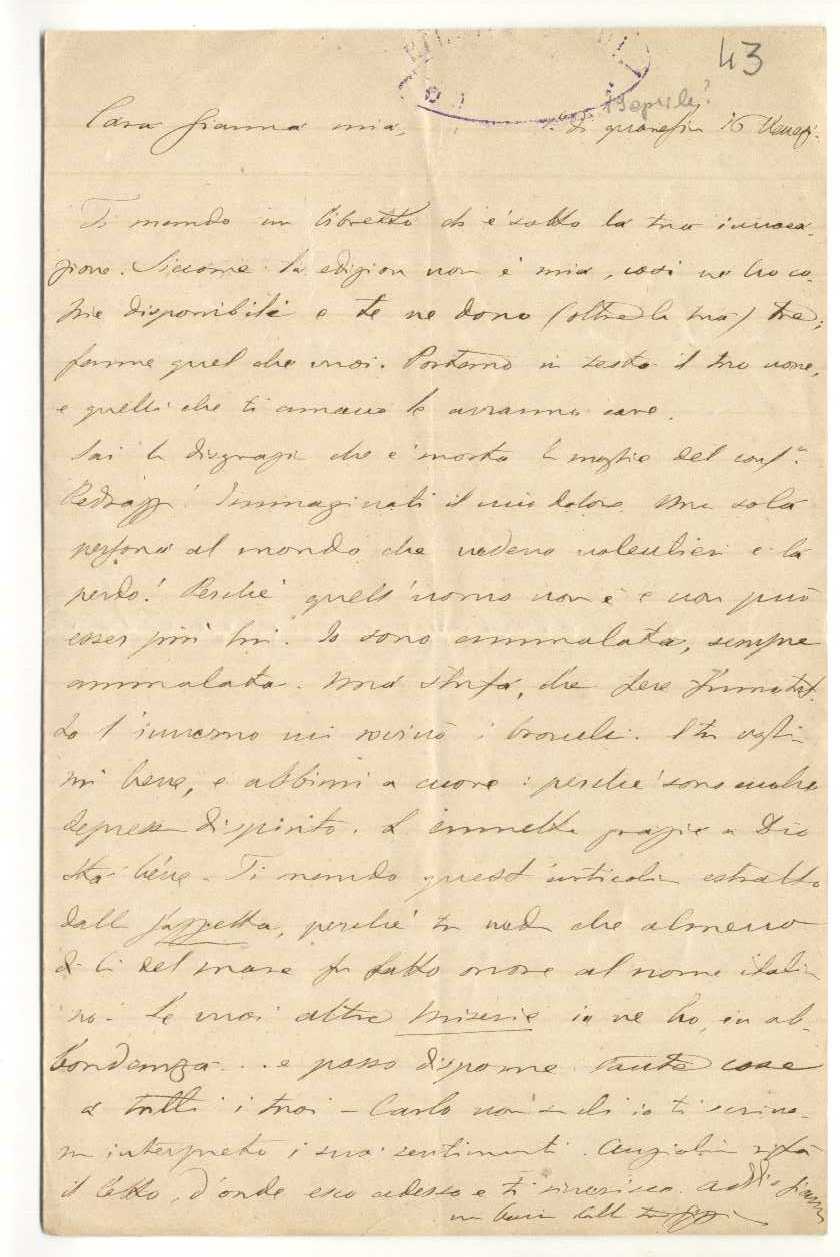 43
19 aprile?
Cara Gianna mia,
Ti mando un libretto ch'è sotto la tua invoca-
zione. Siccome la edizion non è mia, così ne ho co-
pie disponibili e te ne dono (oltre la tua) tre;
fanne quel che vuoi. Portano in testa il tuo nome,
e quelli che ti amano le avranno care.
Sai la disgrazia che è morta la moglie del
Immaginati il mio dolore. Una sola
persona al mondo che vedevo volentieri e la
perdo! Perchè quell'uomo non è e non può
esser più lui. Io sono ammalata, sempre
ammalata. Una stufa, che fece fumo tut-
to l'inverno mi rovinò i bronchi. E tu vogli-
mi bene, e abbimi a cuore: perchè sono molto
depressa di spirito. grazie a Dio
sta bene. Ti mando quest'articolo estratto
dalla Gazzetta, perchè tu veda che almeno
di là del mare fu fatto onore al nome italia-
no. Se vuoi altre miserie io ne ho, in ab-
bondanza... e posso disporne tante cose
a tutti i tuoi - Carlo non sa ch'io ti scrivo.
interpreto i suoi sentimenti.
il letto, d'onde esco adesso e ti Addio Gianna
un bacio dalla